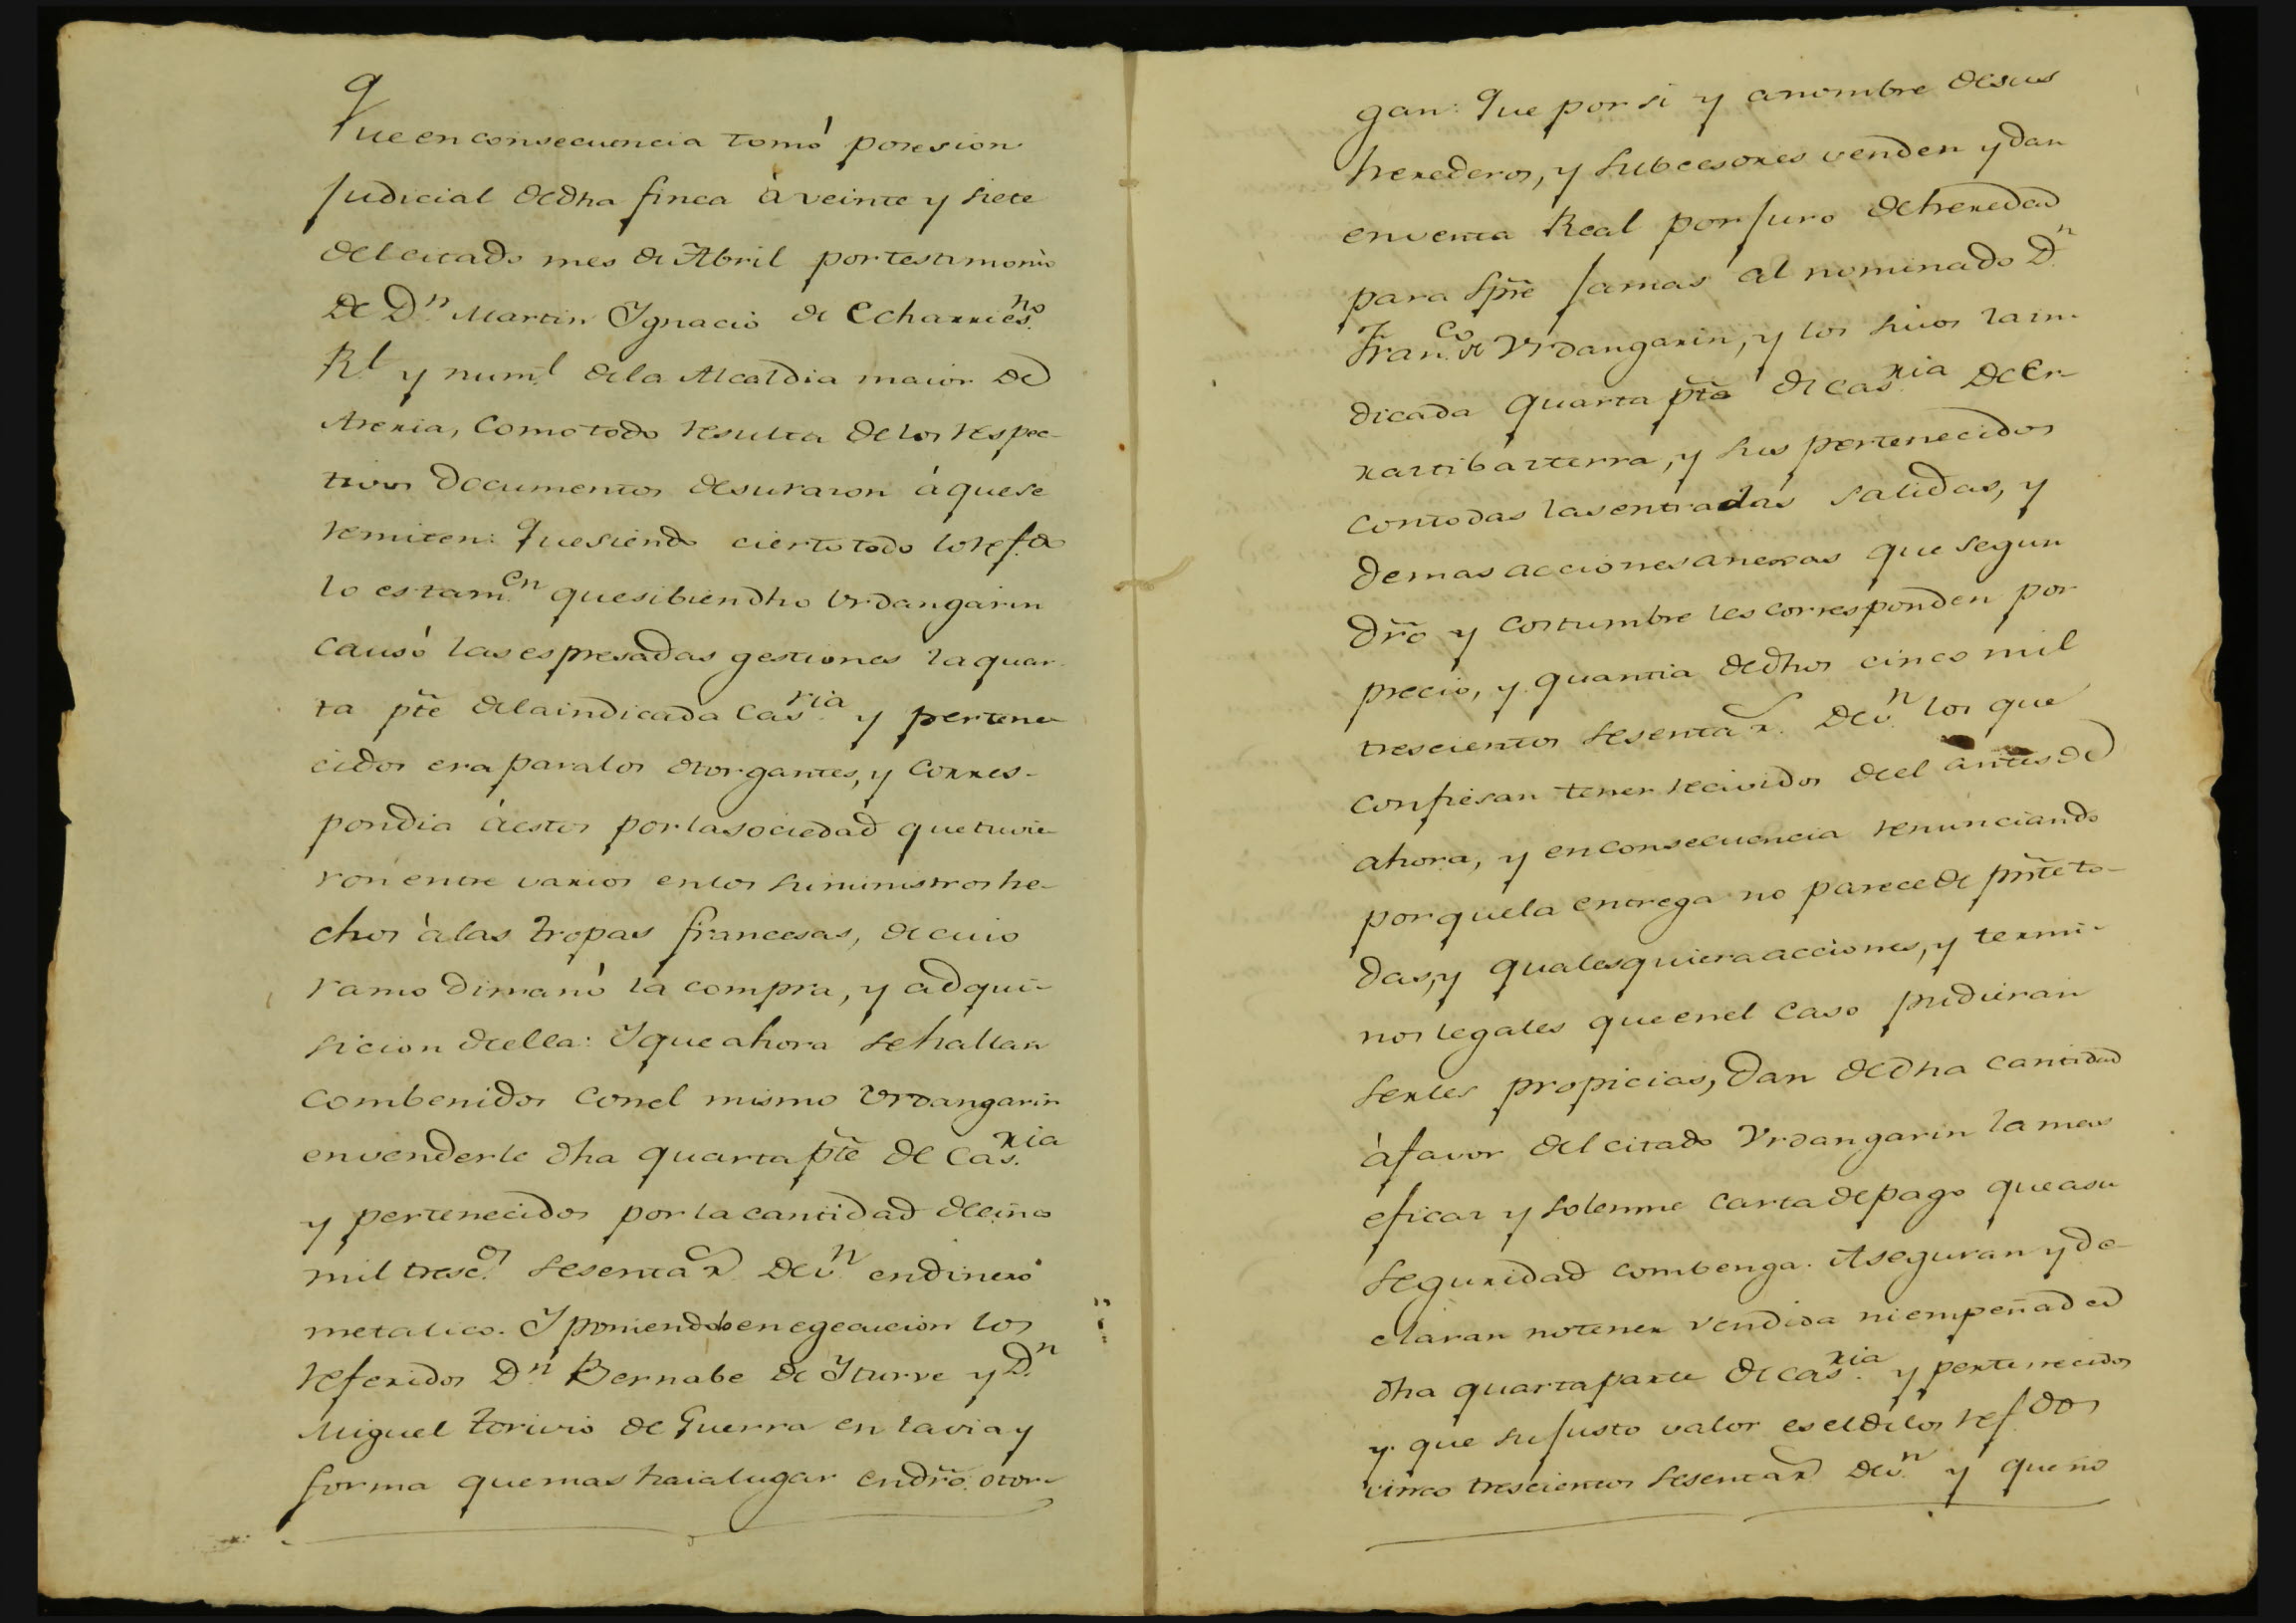 Que en consecuencia tomó posesion
Judicial de dha finca à veinte y siete
del citado mes de Abril por testimonio
de Dn. Martin Ygnacio de Echarri esno.
Rl. y numl. de la Alcaldia maior de
Areria, como todo resulta de los respec-
tivos documentos de su razon á que se
remiten: Que siendo cierto todo lo refdo
lo es tamen. que si bien dho Urdangarin
causó las espresadas gestiones la quar-
ta pte de la indicada Casria. y pertene-
cidos era para los otorgantes, y corres-
pondia à estos por la sociedad que tuvie-
ron entre varios en los suministros he-
chos à las tropas francesas, de cuio
ramo dimanó la compra, y adqui-
sicion de ella: Y que ahora se hallan
combenidos con el mismo Urdangarin
en venderle dha quarta pte de Casria.
y pertenecidos por la cantidad de cinco
mil trescos. sesenta rs. de vn. en dinero
metalico. Y poniendolo en egecucion los
referidos Dn. Bernabe de Yturve y Dn.
Miguel Torivio de Guerra en la via y
forma que mas haia lugar en dro. otor-
gan: Que por si y a nombre de sus
herederos, y subcesores venden y dan
en venta Real por Juro de heredad
para spre Jamas al nominado Dn.
Franco. de Urdangarin, y los suios la in-
dicada quarta pte de Casria. de Er-
rartibazterra, y sus pertenecidos
con todas las entradas salidas, y
demas acciones anexas que segun
dro y costumbre les corresponden por
precio, y quantia de dhos cinco mil
trescientos sesenta rs. de vn. los que
confiesan tener recividos de el antes de
ahora, y en consecuencia renunciando
por que la entrega no parece de pnte to-
das, y qualesquiera acciones, y termi-
nos legales que en el caso pudieran
serles propicias, dan de dha cantidad
à favor del citado Urdangarin la mas
eficaz y solemne carta de pago que a su
seguridad combenga. Aseguran y de-
claran no tener vendida ni empeñada
dha quarta parte de Casria. y pertenecidos
y que su Justo valor es el de los refdos
cinco trescientos sesenta rs. de vn. y que no